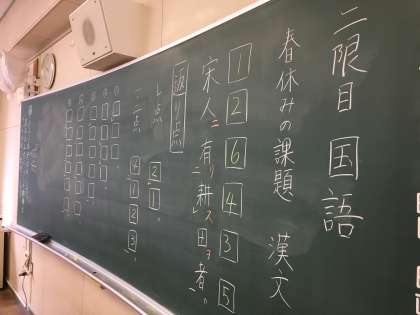 二限目 国語
春休みの課題 漢文
1 2 6 4 3 5
宋人ニ有リ耕レス田ヲ者。
返り点
レ点 2 1
一二点 4 1 2 3